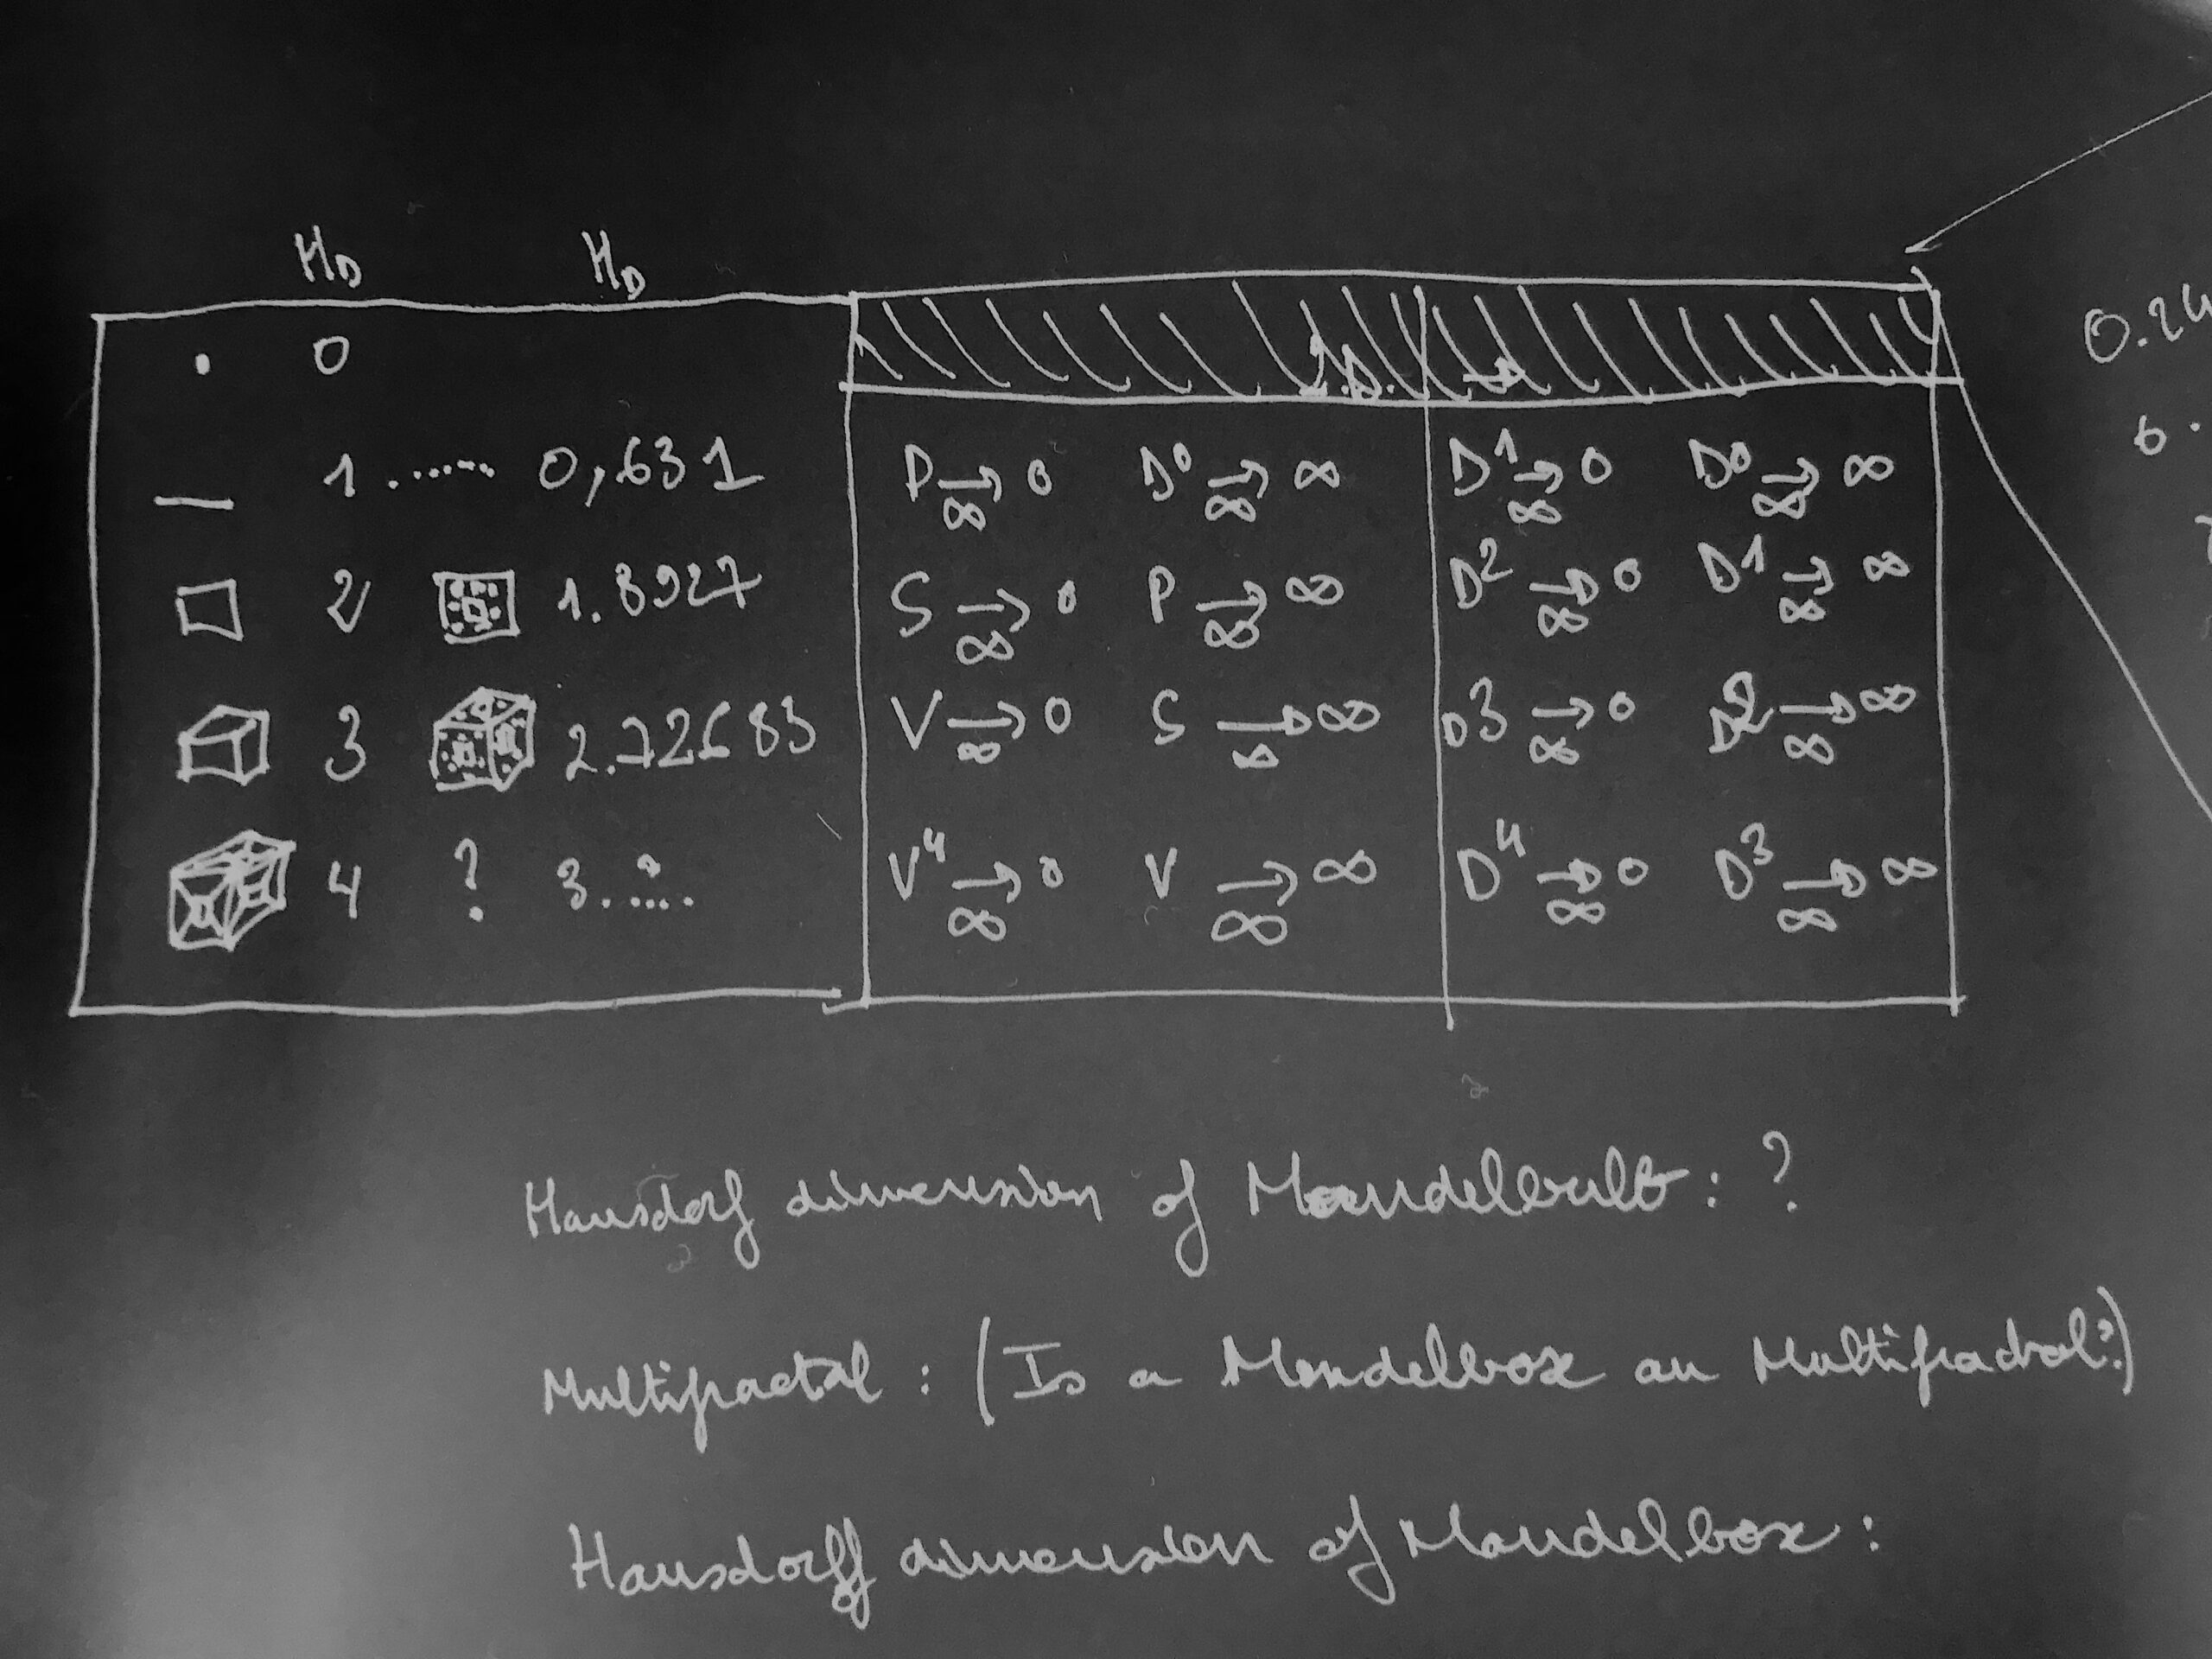 H_D H_D
0
1 ....... 0,631 P →∞ 0 D⁰ →∞ ∞ D¹ →∞ 0 D⁰ →∞ ∞
2 1.8927 S →∞ 0 P →∞ ∞ D² →∞ 0 D¹ →∞ ∞
3 2.72683 V →∞ 0 S →∞ ∞ D3 →∞ 0 D2 →∞ ∞
4 ? 3...?... V⁴ →∞ 0 V →∞ ∞ D⁴ →∞ 0 D³ →∞ ∞
0.24
6.
Hausdorf dimension of Mandelbulb : ?
Multifractal : (Is a Mandelbox an Multifractal?)
Hausdorff dimension of Mandelbox :